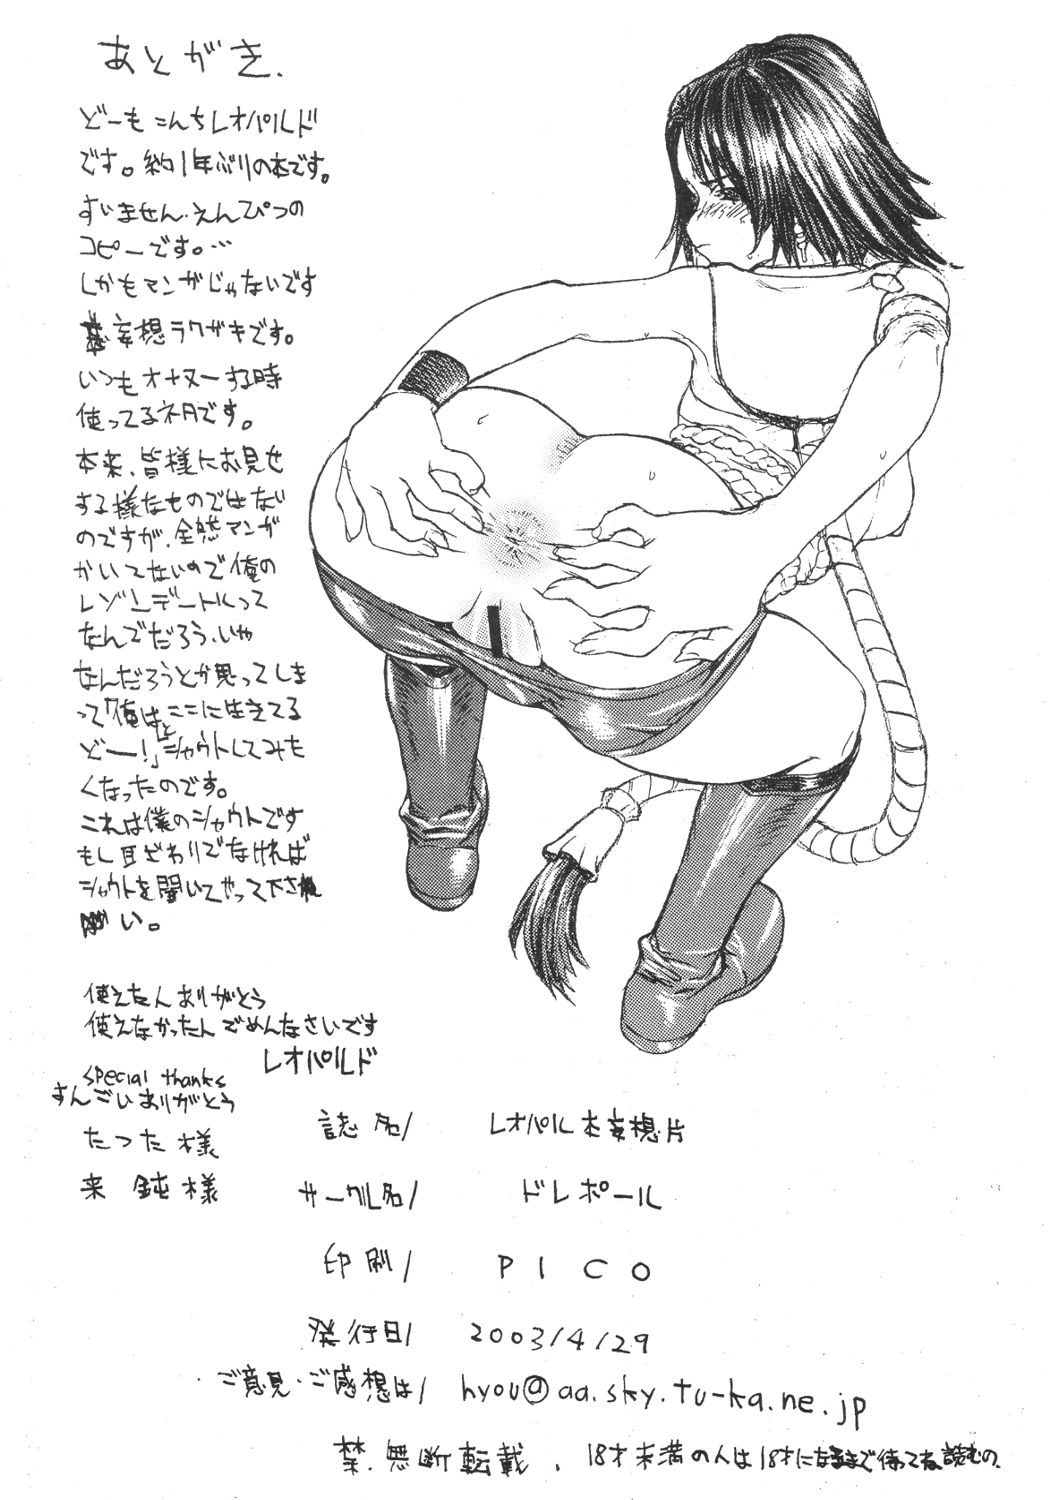 あとがき.
どーもこんちレオパルド
です。約1年ぶりの本です。
すいません.えんぴつの
コピーです。…
しかもマンガじゃないです
妄想ラクガキです。
いつもオナヌーする時
使ってるネタです。
本来、皆様にお見せ
する様なものではない
のですが、全然マンガ
かいてないので俺の
レゾンデートルって
なんでだろう、いや
なんだろうとか思ってしま
って「俺はここに生きてる
どー!」とシャウトしてみた
くなったのです。
これは僕のシャウトです
もし耳ざわりでなければ
シャウトを聞いてやって下さ
い。
使えたんありがとう
使えなかったんでめんなさいです
レオパルド
special thanks
すんごいありがとう
たつた様
来鈍様
誌名/ レオパル本妄想片
サークル名/ ドレポール
印刷/ PICO
発行日/ 2003/4/29
・ご意見・ご感想は/ hyou@aa.sky.tu-ka.ne.jp
禁.無断転載. 18才未満の人は18才になるまで待ってね読むの.